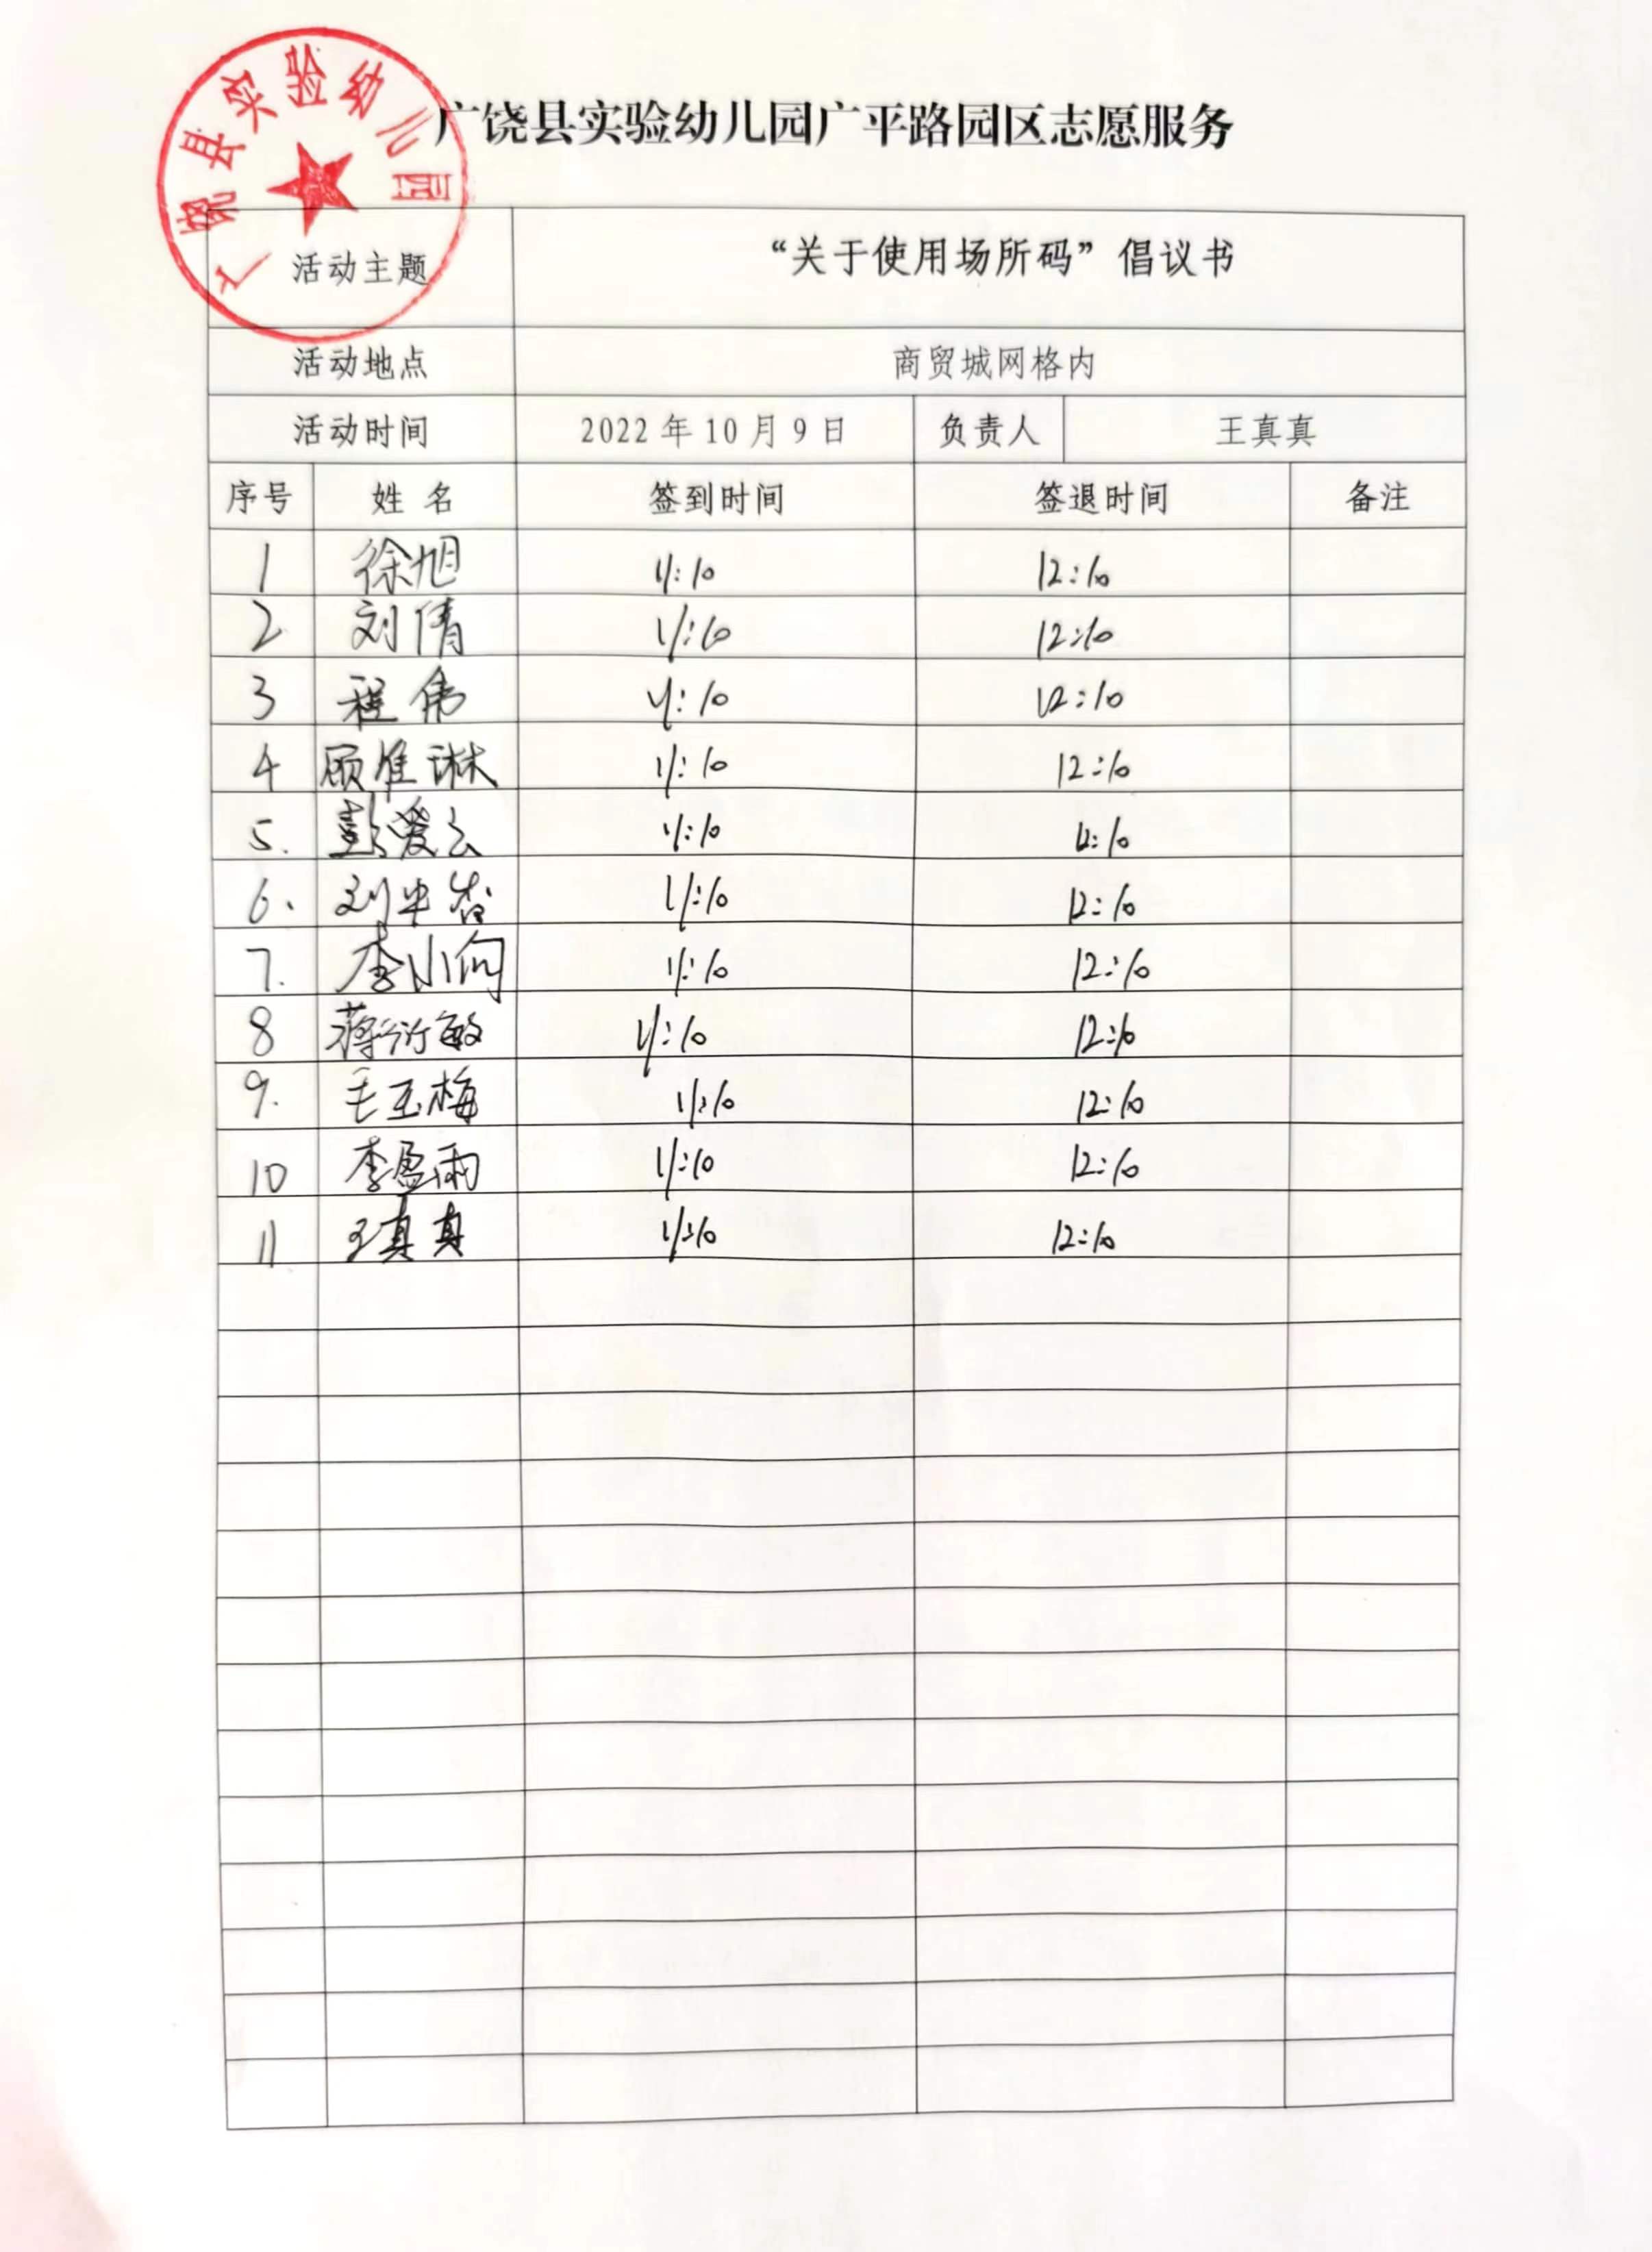 广饶县实验幼儿园
广饶县实验幼儿园广平路园区志愿服务
活动主题 “关于使用场所码”倡议书
活动地点 商贸城网格内
活动时间 2022年10月9日 负责人 王真真
序号 姓名 签到时间 签退时间 备注
1 徐旭 11:10 12:10
2 刘倩 11:10 12:10
3 程伟 11:10 12:10
4 顾淮琳 11:10 12:10
5. 彭爱云 11:10 12:10
6. 刘 11:10 12:10
7. 李小向 11:10 12:10
8 蒋衍敏 11:10 12:10
9. 毛玉梅 11:10 12:10
10 李盈雨 11:10 12:10
11 王真真 11:10 12:10